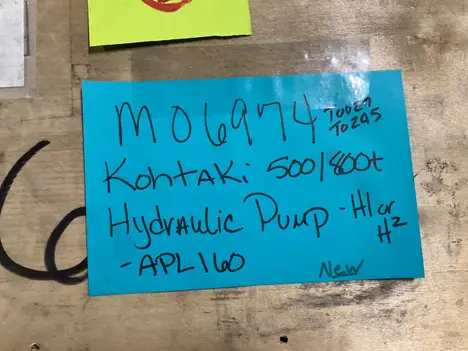 MO6974 T0027
T0295
KohtAKi 500/800t
HydRAulic Pump - H1 or
H2
- APL160
New
6